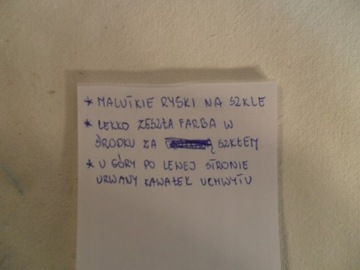 * MALUTKIE RYSKI NA SZKLE
* LEKKO ZESZŁA FARBA W
ŚRODKU ZA SZKŁEM
* U GÓRY PO LEWEJ STRONIE
URWANY KAWAŁEK UCHWYTU